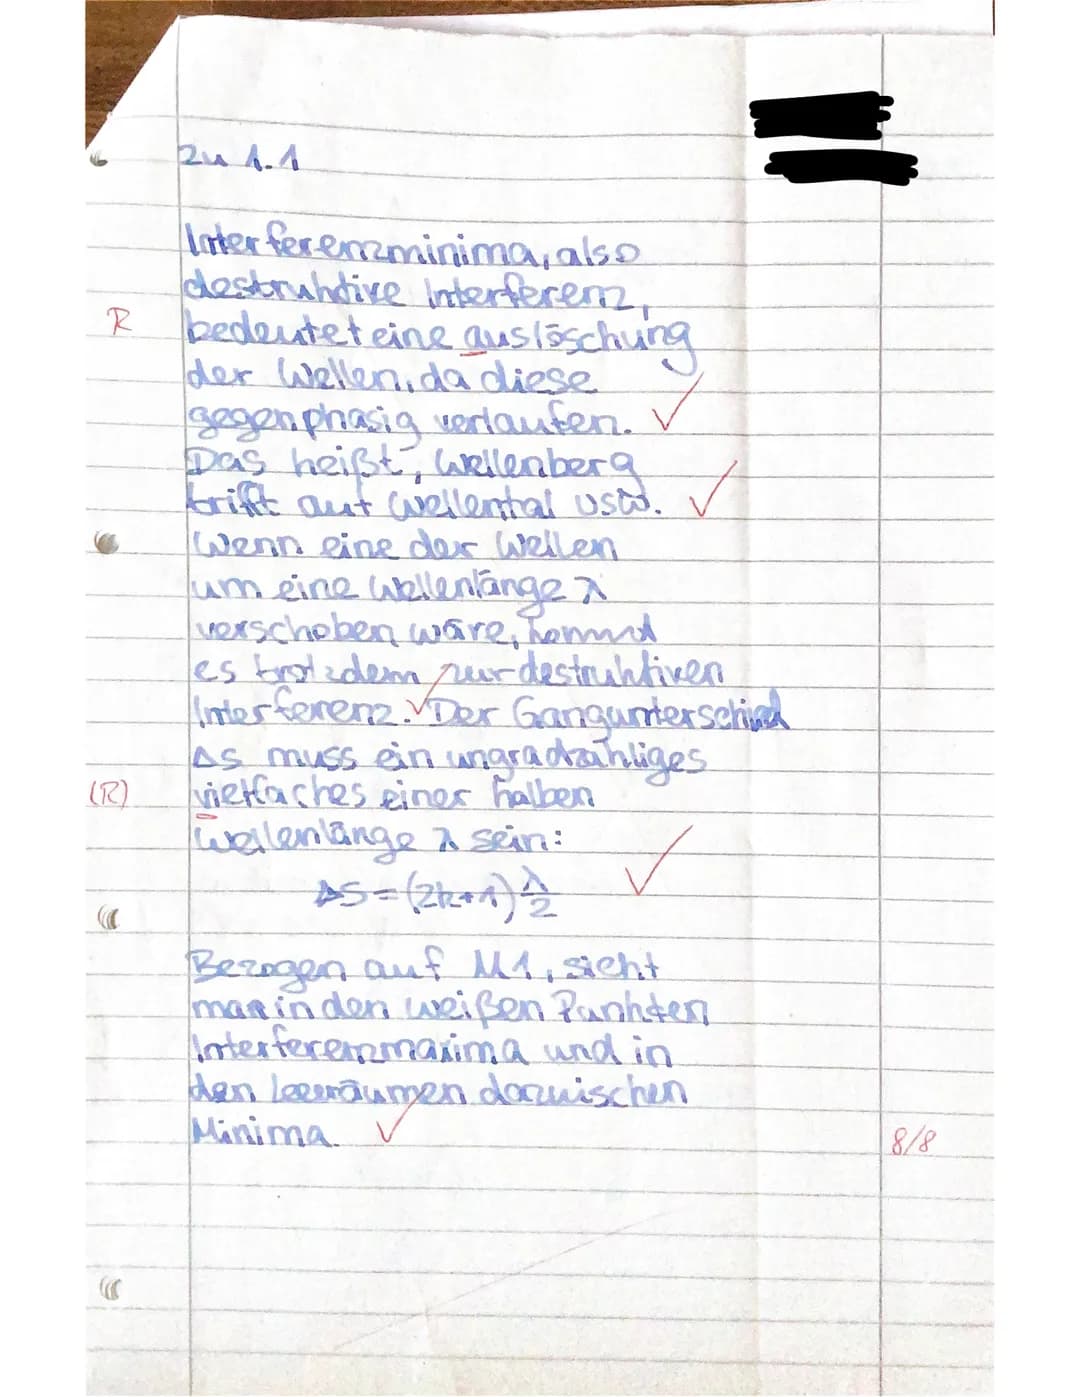 zu 1.1
Interferenzminima, also
destruktive Interferenz,
R
bedeutet eine auslöschung
der Wellen, da diese
gegenphasig verlaufen.
Das heißt, Wellenberg
trifft auf Wellental usw.
Wenn eine der Wellen
um eine Wellenlänge λ
verschoben wäre, kommt
es trotzdem zur destruktiven
Interferenz. Der Gangunterschied
Δs muss ein ungradzahliges
(R)
vielfaches einer halben
Wellenlänge λ sein:
ΔS = (2k+1) λ/2
Bezogen auf M1, sieht
man in den weißen Punkten
Interferenzmaxima und in
den leeräumen dazwischen
Minima.
8/8